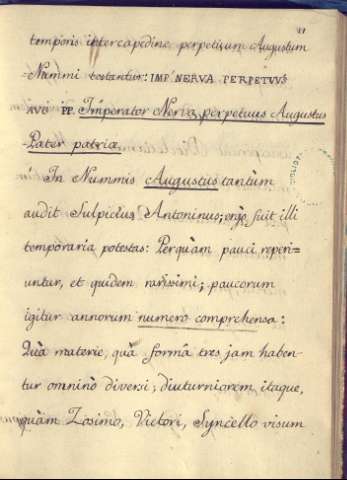 temporis intercapedine perpetuum Augustum
Nummi testantur: IMP NERVA PERPETVVS
AVG PP. Imperator Nerva perpetuus Augustus
Pater patriæ.
In Nummis Augustus tantùm
audit Sulpicius Antoninus; ergo fuit illi
temporaria potestas: Perquàm pauci reperi=
untur, et quidem rarissimi; paucorum
igitur annorum numero comprehensa:
Quâ materie, quâ formâ tres jam haben
tur omninò diversi; diuturniorem itaque,
quàm Zosimo, Victori, Syncello visum